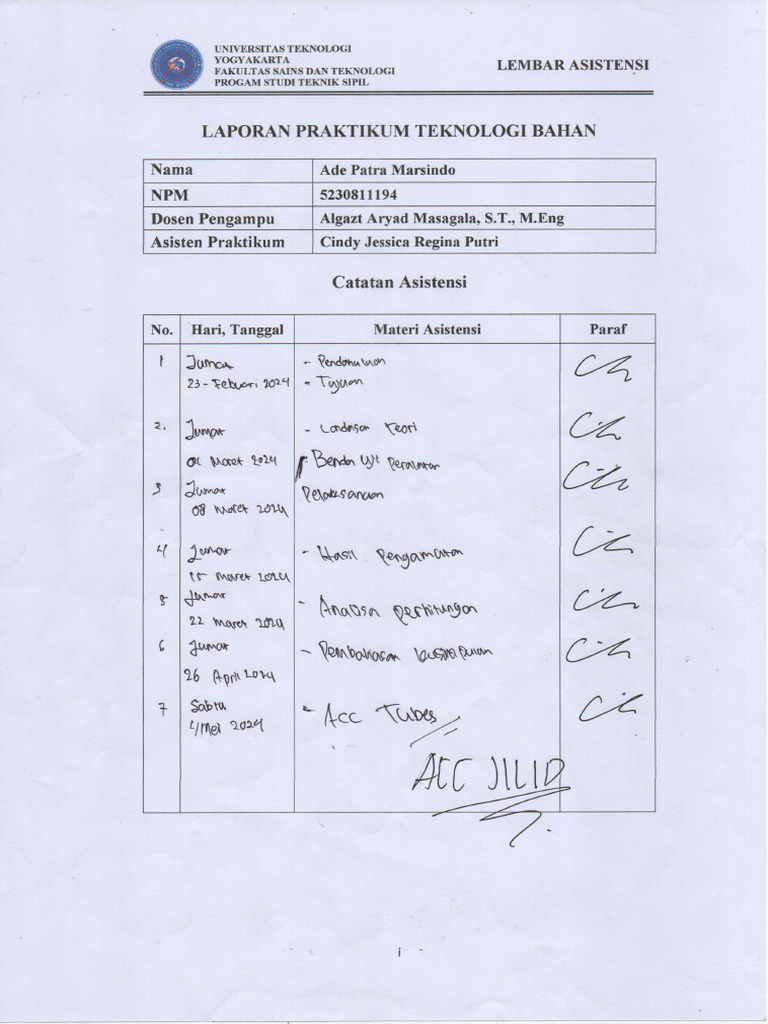 UNIVERSITAS TEKNOLOGI
YOGYAKARTA
FAKULTAS SAINS DAN TEKNOLOGI
PROGAM STUDI TEKNIK SIPIL
LEMBAR ASISTENSI
LAPORAN PRAKTIKUM TEKNOLOGI BAHAN
Nama Ade Patra Marsindo
NPM 5230811194
Dosen Pengampu Algazt Aryad Masagala, S.T., M.Eng
Asisten Praktikum Cindy Jessica Regina Putri
Catatan Asistensi
No. Hari, Tanggal Materi Asistensi Paraf
1 Jumat - Pendahuluan
23 - Febuari 2024 - Tujuan
2. Jumat - Landasan Teori
01 Maret 2024 - Benda Uji Peralatan
3 Jumat Pelaksanaan
08 Maret 2024
4 Jumat - Hasil Pengamatan
15 Maret 2024
5 Jumat - Analisa perhitungan
22 Maret 2024
6 Jumat - Pembahasan kesimpulan
26 April 2024
7 Sabtu - Acc Tubes
4 Mei 2024
ACC JILID
i